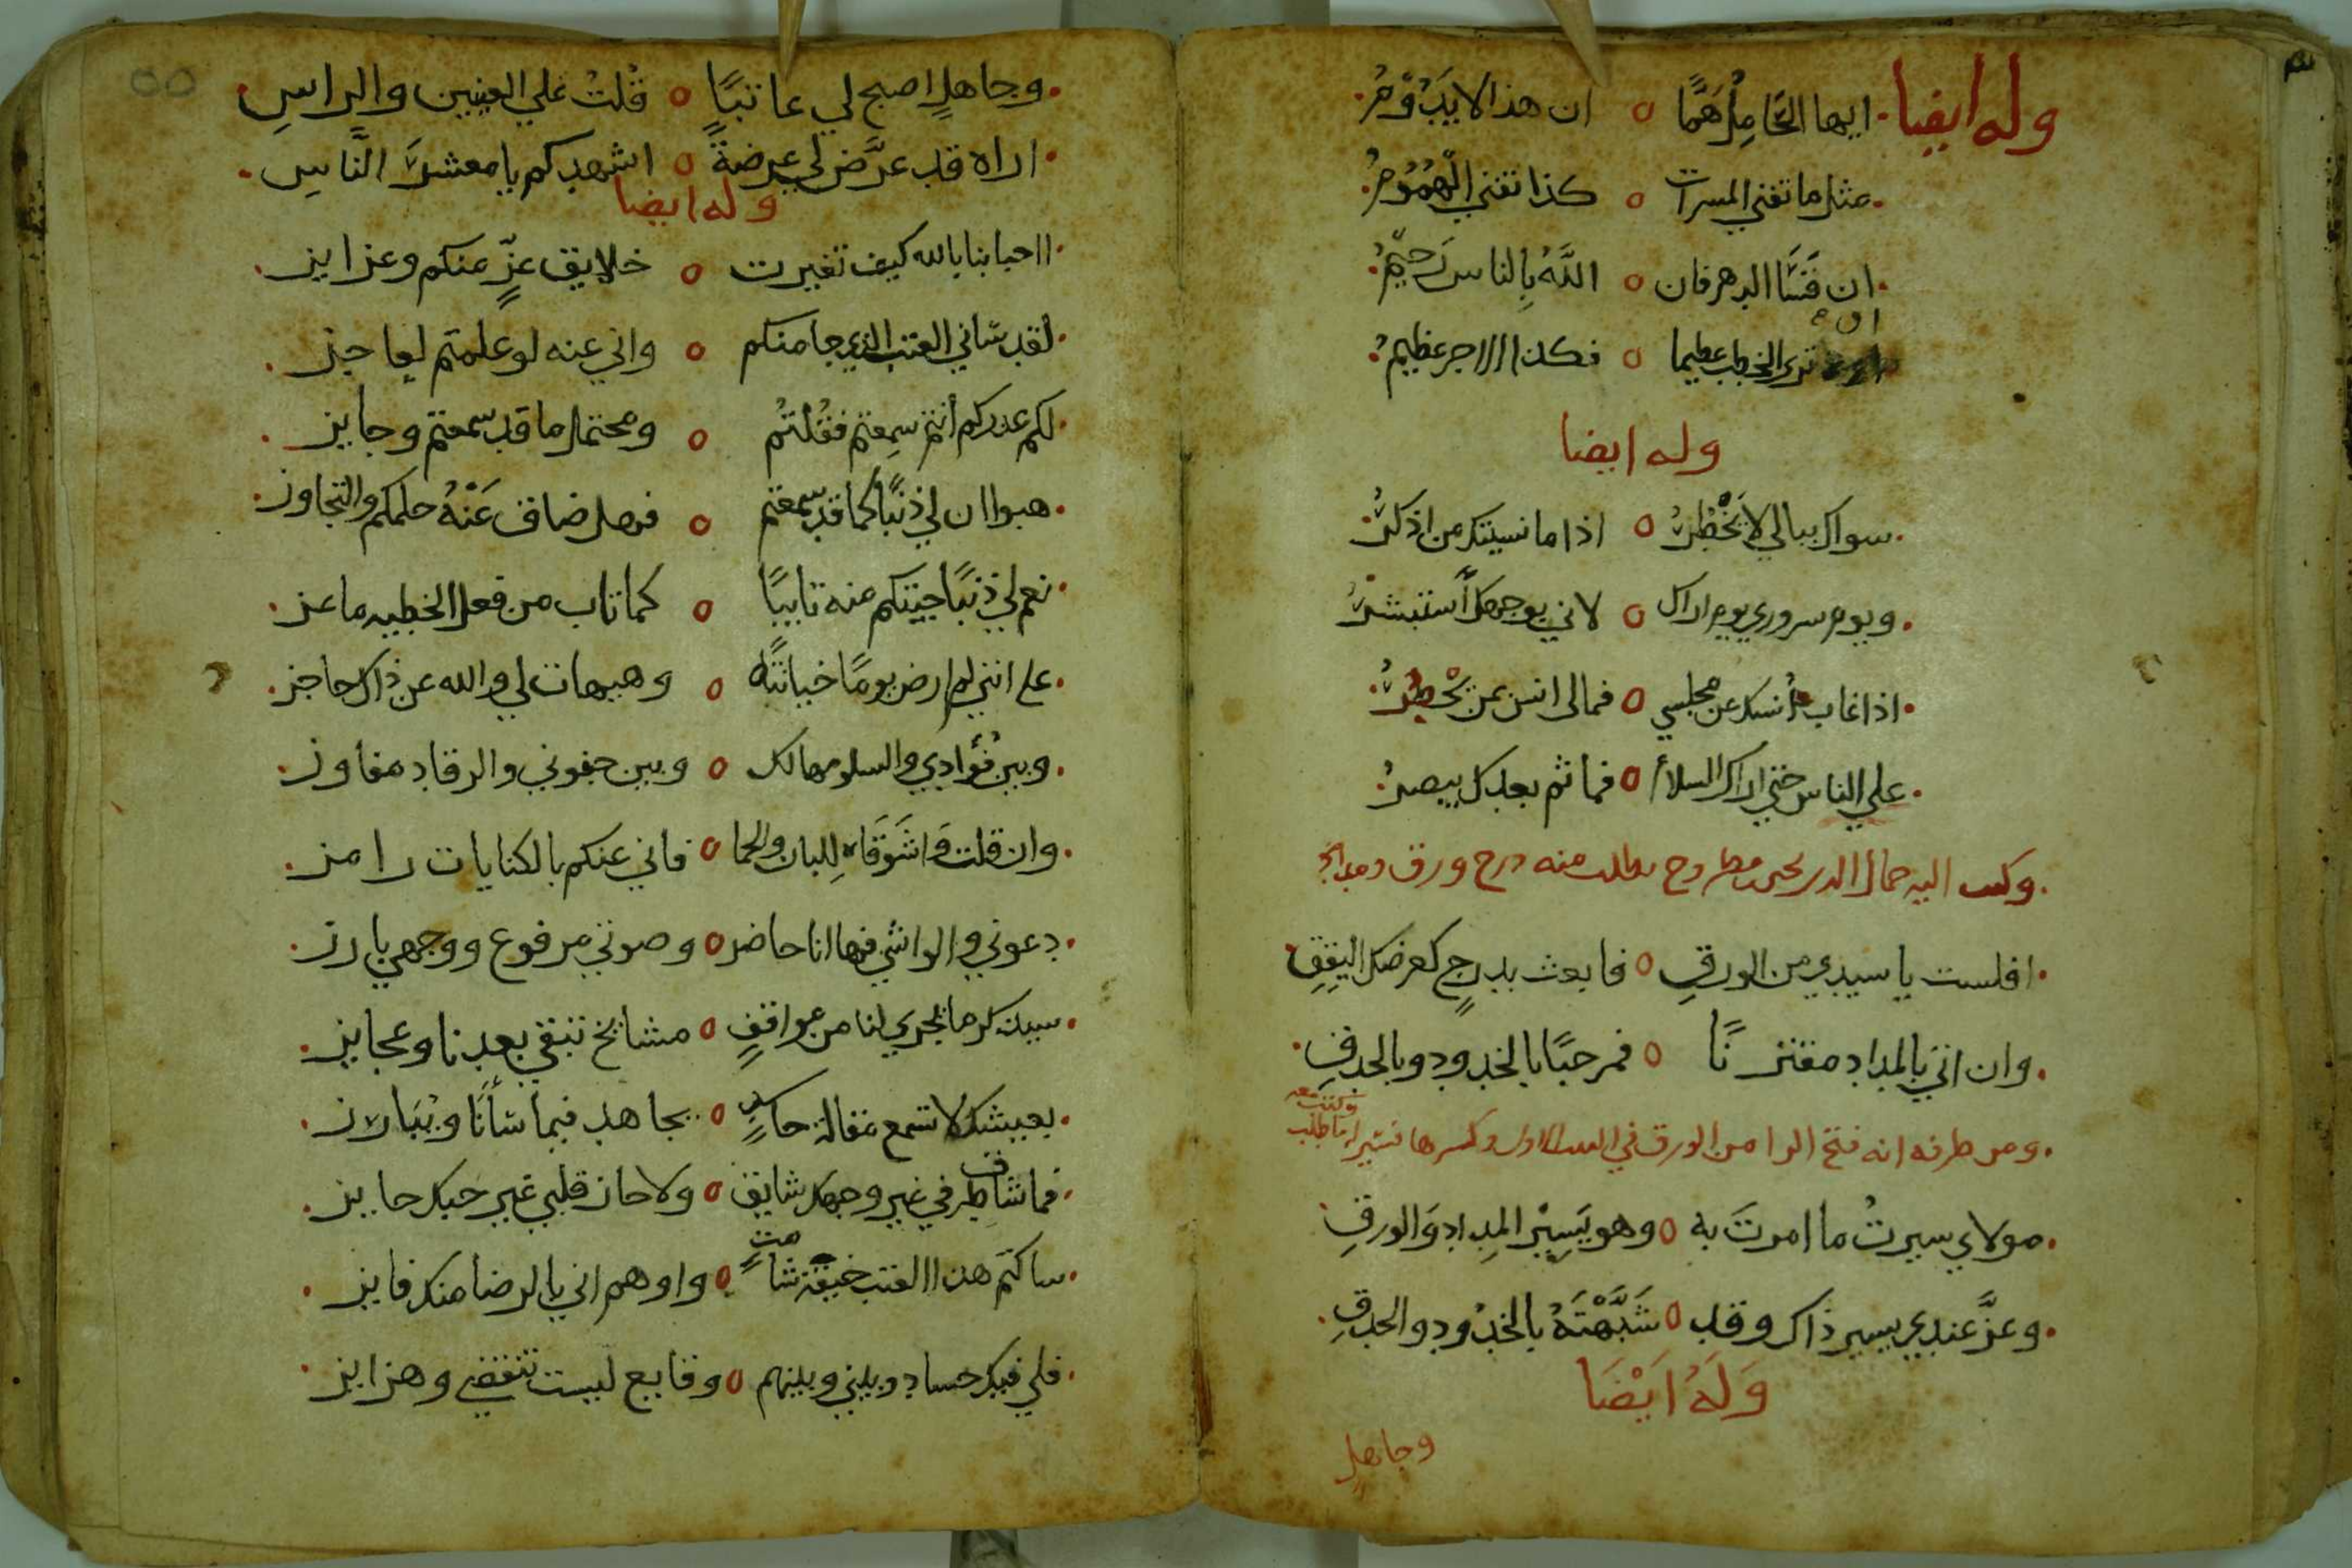 وله ايضا ايها الحَامِلُ هَمًّا ٥ ان هذا لا يَدُوْمُ
مثل ما تفني المسرات ٥ كذا تفني الْهُمُوْمُ
ان قَسَا الدهر فان ٥ اللَّهَ بِالناس رَحيْمُ
او ترى الخطب عظيما ٥ فكذا الاجر عظيمُ
وله ايضا
سواك ببالي لا يَخْطُرُ ٥ اذا ما نسيتك من اذكرُ
ويوم سروري يوم اراك ٥ لاني بوجهك أستبشرُ
اذا غاب أنسك عن مجلسي ٥ فمالى انس بمن يَحْضُرُ
علي الناس حتي اراك السلامُ ٥ فما ثم بعدك من يبصرُ
وكتب اليه جمال الدين يحيى بن مطروح يطلب منه درج ورق ومداد
افلست يا سيدي من الورقِ ٥ فابعث بدرجٍ كعرضك اليققِ
وان اتي بالمداد مقترنًا ٥ فمرحبًا بالخدود وبالحدقِ
ومن طرفه انه فتح الرا من الورق في البيت الاول وكسرها فسير له ما طلب
وكتب معه
مولاي سيرتُ ما امرتَ به ٥ وهو يَسِيْر المِداد وَالورقِ
وعزَّ عندي يسير ذاك وقد ٥ شَبَّهْتَهُ بالخدُود والحدقِ
وَلَهُ اَيْضَا
وجاهلٍ
٥٥
وجاهلٍ اصبح لي عاتبًا ٥ قُلتُ علي العينين والراسِ
اراه قد عرَّض لي عرضةً ٥ اشهدكم يا معشرَ النَّاسِ
وله ايضا
ااحبابنا بالله كيف تغيرت ٥ خلايق عزٍّ منكم وعزايز
لقد سَاني العتب الذي جا منكم ٥ واني عنه لو علمتم لعاجز
لكم عذركم أنتم سمِعتم فقُلتُم ٥ ومحتمل ما قد سمعتم وجايز
هبوا ان لي ذنبًا كما قد سمعتم ٥ فهل ضاق عَنْهُ حلمكم والتجاوز
نعم لي ذنبًا جيتكم منه تايبًا ٥ كما تاب من فعل الخطيه ماعز
على انني لم ارض يومًا خيانتًاه ٥ وهيهات لي والله عن ذاك حاجز
وبين فُؤادي والسلو مهالك ٥ وبين جفوني والرقاد مفاوز
وان قلت وَاشَوقَاه لِلبان والحما ٥ فاني عنكم بالكنايات رامز
دعوني والواشي فها انا حاضر ٥ وصوتي مرفوع ووجهي بارز
سيذكر ما يجري لنا من مواقفٍ ٥ مشايخ تبقي بعدنا وعجايز
بعيشك لا تسمع مقالة حاسدٍ ٥ يجاهد فيما سَأنَا ويُبَارز
فما شاق طرفي غير وجهك شايق ٥ ولا حاز قلبي غير حبك حايز
ساكتم هذا العتب خيفة شامتٍ ٥ واوهم اني بالرضا منك فايز
فلي فيك حساد وبيني وبينهم ٥ وقايع ليست تنقضي وهزايز